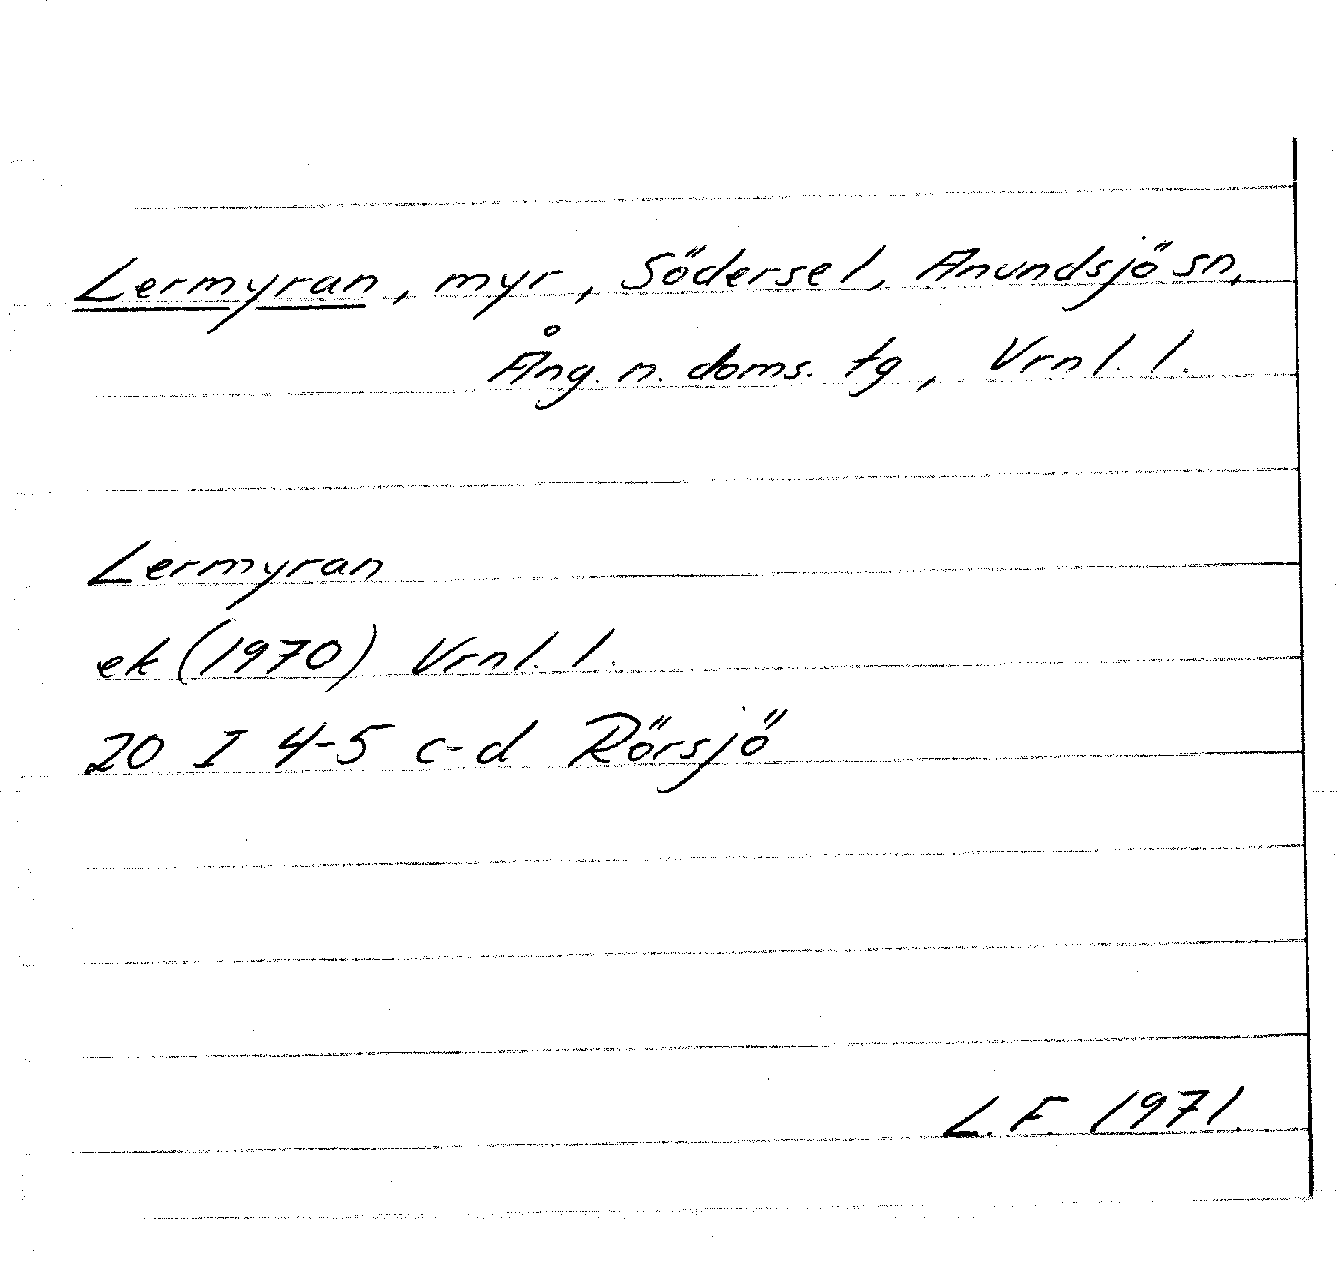 Lermyran, myr, Södersel, Anundsjö sn,
Ång. n. doms. tg, Vrnl. l.
Lermyran
ek (1970) Vrnl. l.
20 I 4-5 c-d Rörsjö
L.F. 1971.